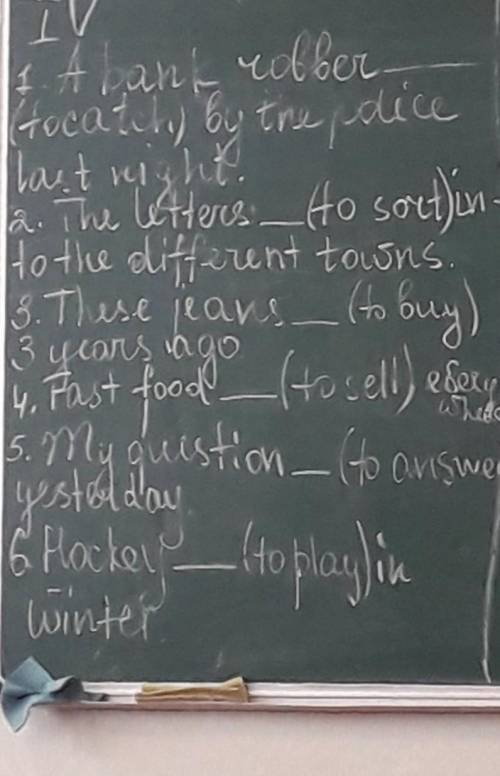 IV
1. A bank robber ___
(to catch) by the police
last night.
2. The letters __ (to sort) in-
to the different towns.
3. These jeans __ (to buy)
3 years ago
4. Fast food __ (to sell) every
where
5. My question __ (to answe
yesterday
6 Hockey __ (to play) in
winter